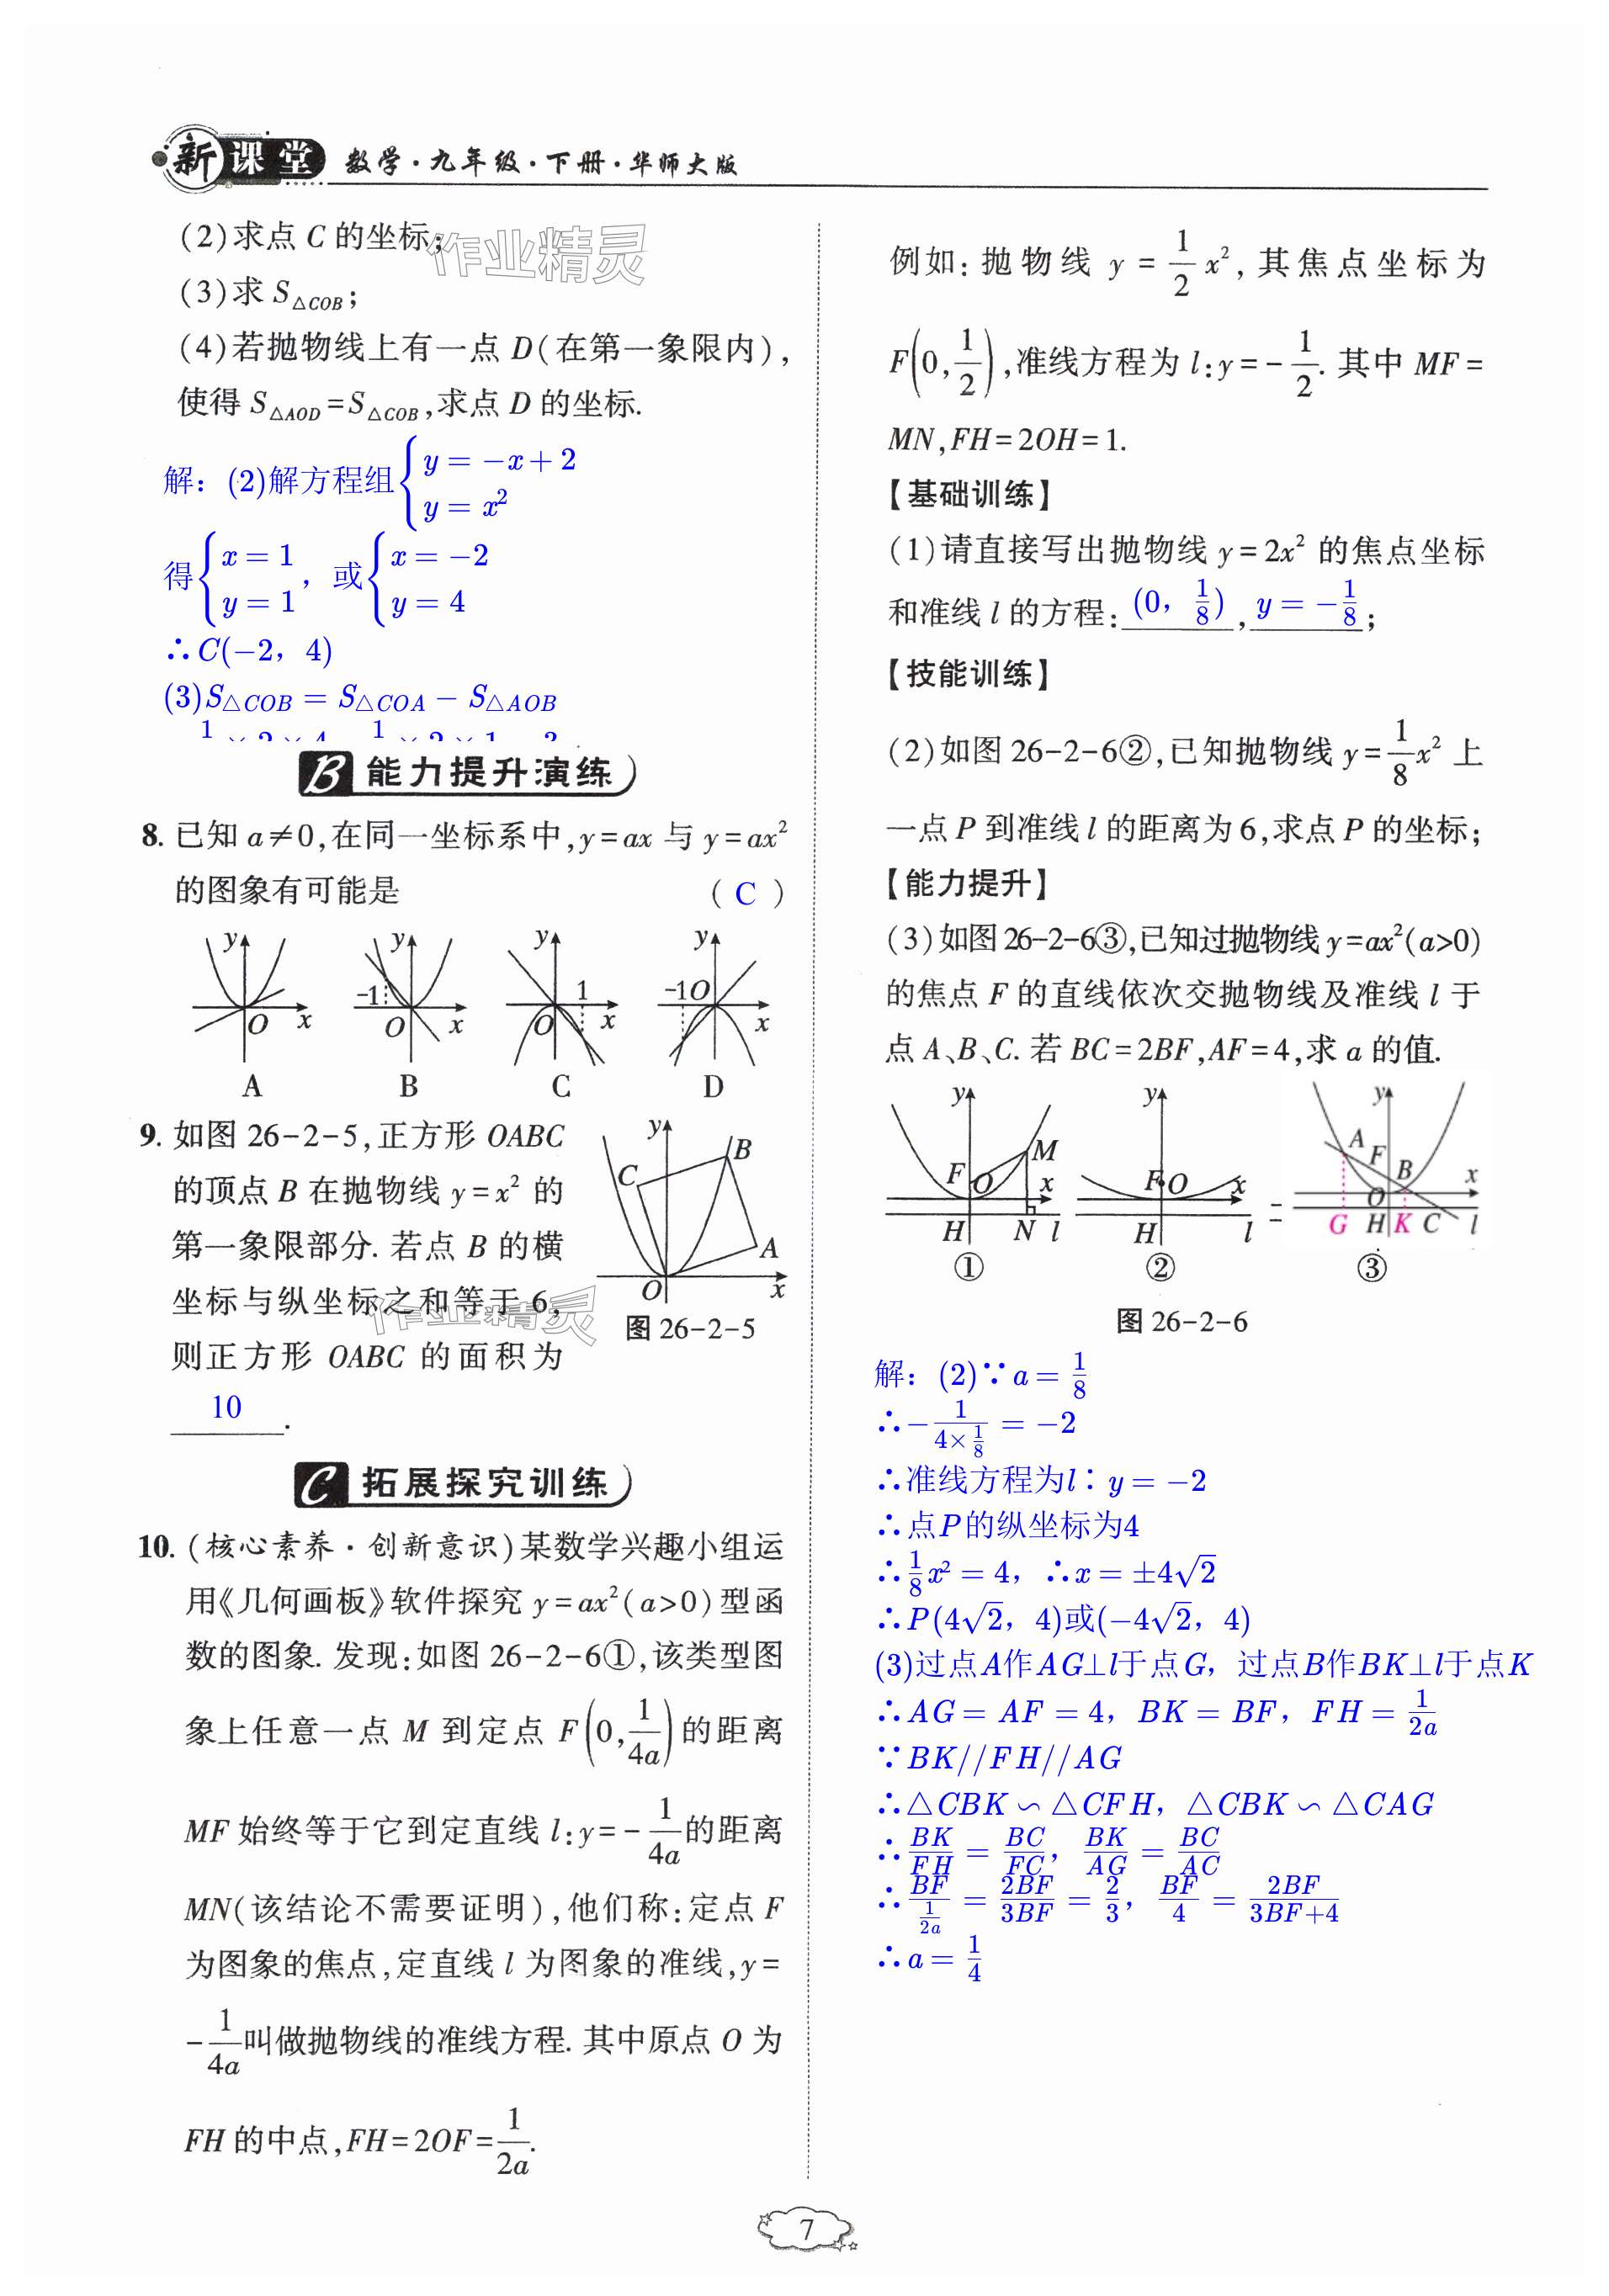 新课堂 数学·九年级·下册·华师大版
(2)求点 C 的坐标;
作业精灵
(3)求 S△COB;
(4)若抛物线上有一点 D(在第一象限内),
使得 S△AOD=S△COB,求点 D 的坐标.
解：(2)解方程组{y=−x+2
y=x²
得{x=1
y=1，或{x=−2
y=4
∴C(−2，4)
(3)S△COB=S△COA−S△AOB
B 能力提升演练
8. 已知 a≠0,在同一坐标系中,y=ax 与 y=ax²
的图象有可能是 ( C )
y y y 1 y
-1 -1 O
O x O x O x x
A B C D
9. 如图 26-2-5,正方形 OABC
的顶点 B 在抛物线 y=x² 的
第一象限部分. 若点 B 的横
坐标与纵坐标之和等于 6,
则正方形 OABC 的面积为
10 .
y B
C
A
O x
图 26-2-5
作业精灵
C 拓展探究训练
10. (核心素养·创新意识)某数学兴趣小组运
用《几何画板》软件探究 y=ax²(a>0)型函
数的图象. 发现:如图 26-2-6①,该类型图
象上任意一点 M 到定点 F(0,1/4a)的距离
MF 始终等于它到定直线 l:y=-1/4a的距离
MN(该结论不需要证明),他们称:定点 F
为图象的焦点,定直线 l 为图象的准线,y=
-1/4a叫做抛物线的准线方程. 其中原点 O 为
FH 的中点,FH=2OF=1/2a.
例如: 抛物线 y=1/2x², 其焦点坐标为
F(0,1/2),准线方程为 l:y=-1/2. 其中 MF=
MN,FH=2OH=1.
【基础训练】
(1)请直接写出抛物线 y=2x² 的焦点坐标
和准线 l 的方程: (0，1/8) , y=−1/8 ;
【技能训练】
(2)如图 26-2-6②,已知抛物线 y=1/8x² 上
一点 P 到准线 l 的距离为 6,求点 P 的坐标;
【能力提升】
(3)如图 26-2-6③,已知过抛物线 y=ax²(a>0)
的焦点 F 的直线依次交抛物线及准线 l 于
点 A、B、C. 若 BC=2BF,AF=4,求 a 的值.
y y y
M A F B
F O x F O x O x
H N l H l G H K C l
① ② ③
图 26-2-6
解：(2)∵a=1/8
∴−1/(4×1/8)=−2
∴准线方程为l：y=−2
∴点P的纵坐标为4
∴1/8x²=4，∴x=±4√2
∴P(4√2，4)或(−4√2，4)
(3)过点A作AG⊥l于点G，过点B作BK⊥l于点K
∴AG=AF=4，BK=BF，FH=1/2a
∵BK//FH//AG
∴△CBK∽△CFH，△CBK∽△CAG
∴BK/FH=BC/FC，BK/AG=BC/AC
∴BF/(1/2a)=2BF/3BF=2/3，BF/4=2BF/(3BF+4)
∴a=1/4
7